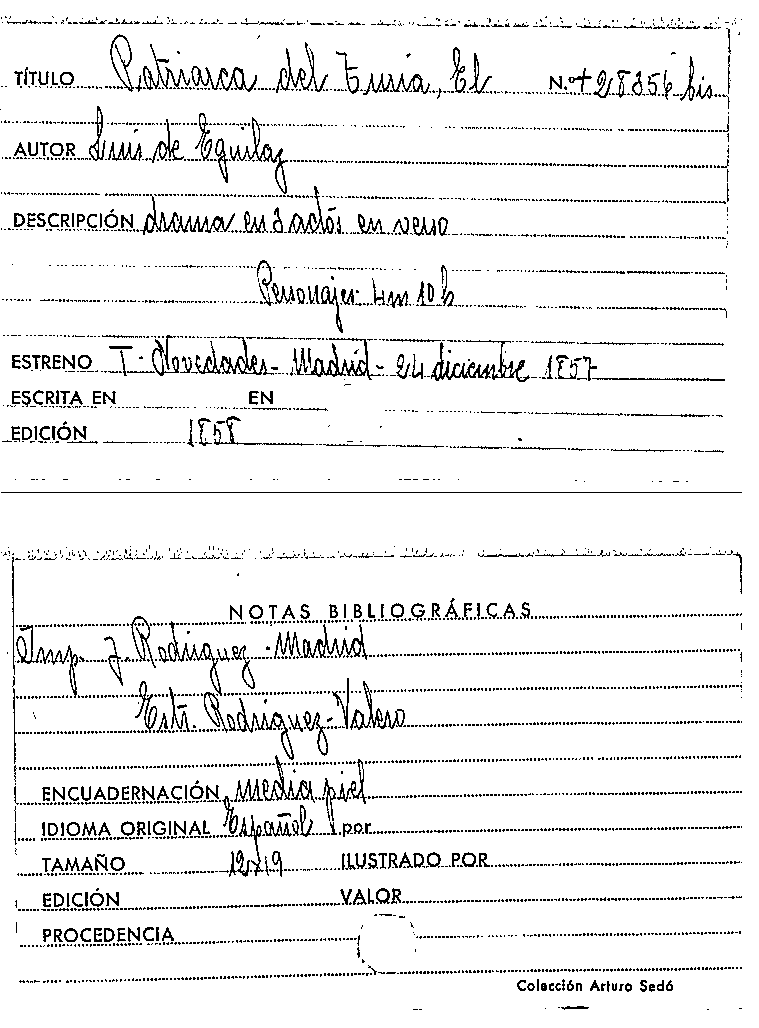 TÍTULO Patriarca del Turia, El N.º + 28356 bis
AUTOR Luis de Eguilaz
DESCRIPCIÓN drama en 3 actos en verso
Personajes 4m 10h
ESTRENO T- Novedades- Madrid- 24 diciembre 1857
ESCRITA EN EN
EDICIÓN 1858
NOTAS BIBLIOGRÁFICAS
Imp. J. Rodriguez - Madrid
Estr. Rodriguez-Valero
ENCUADERNACIÓN media piel
IDIOMA ORIGINAL Español por
TAMAÑO 12x19 ILUSTRADO POR
EDICIÓN VALOR
PROCEDENCIA
Colección Arturo Sedó